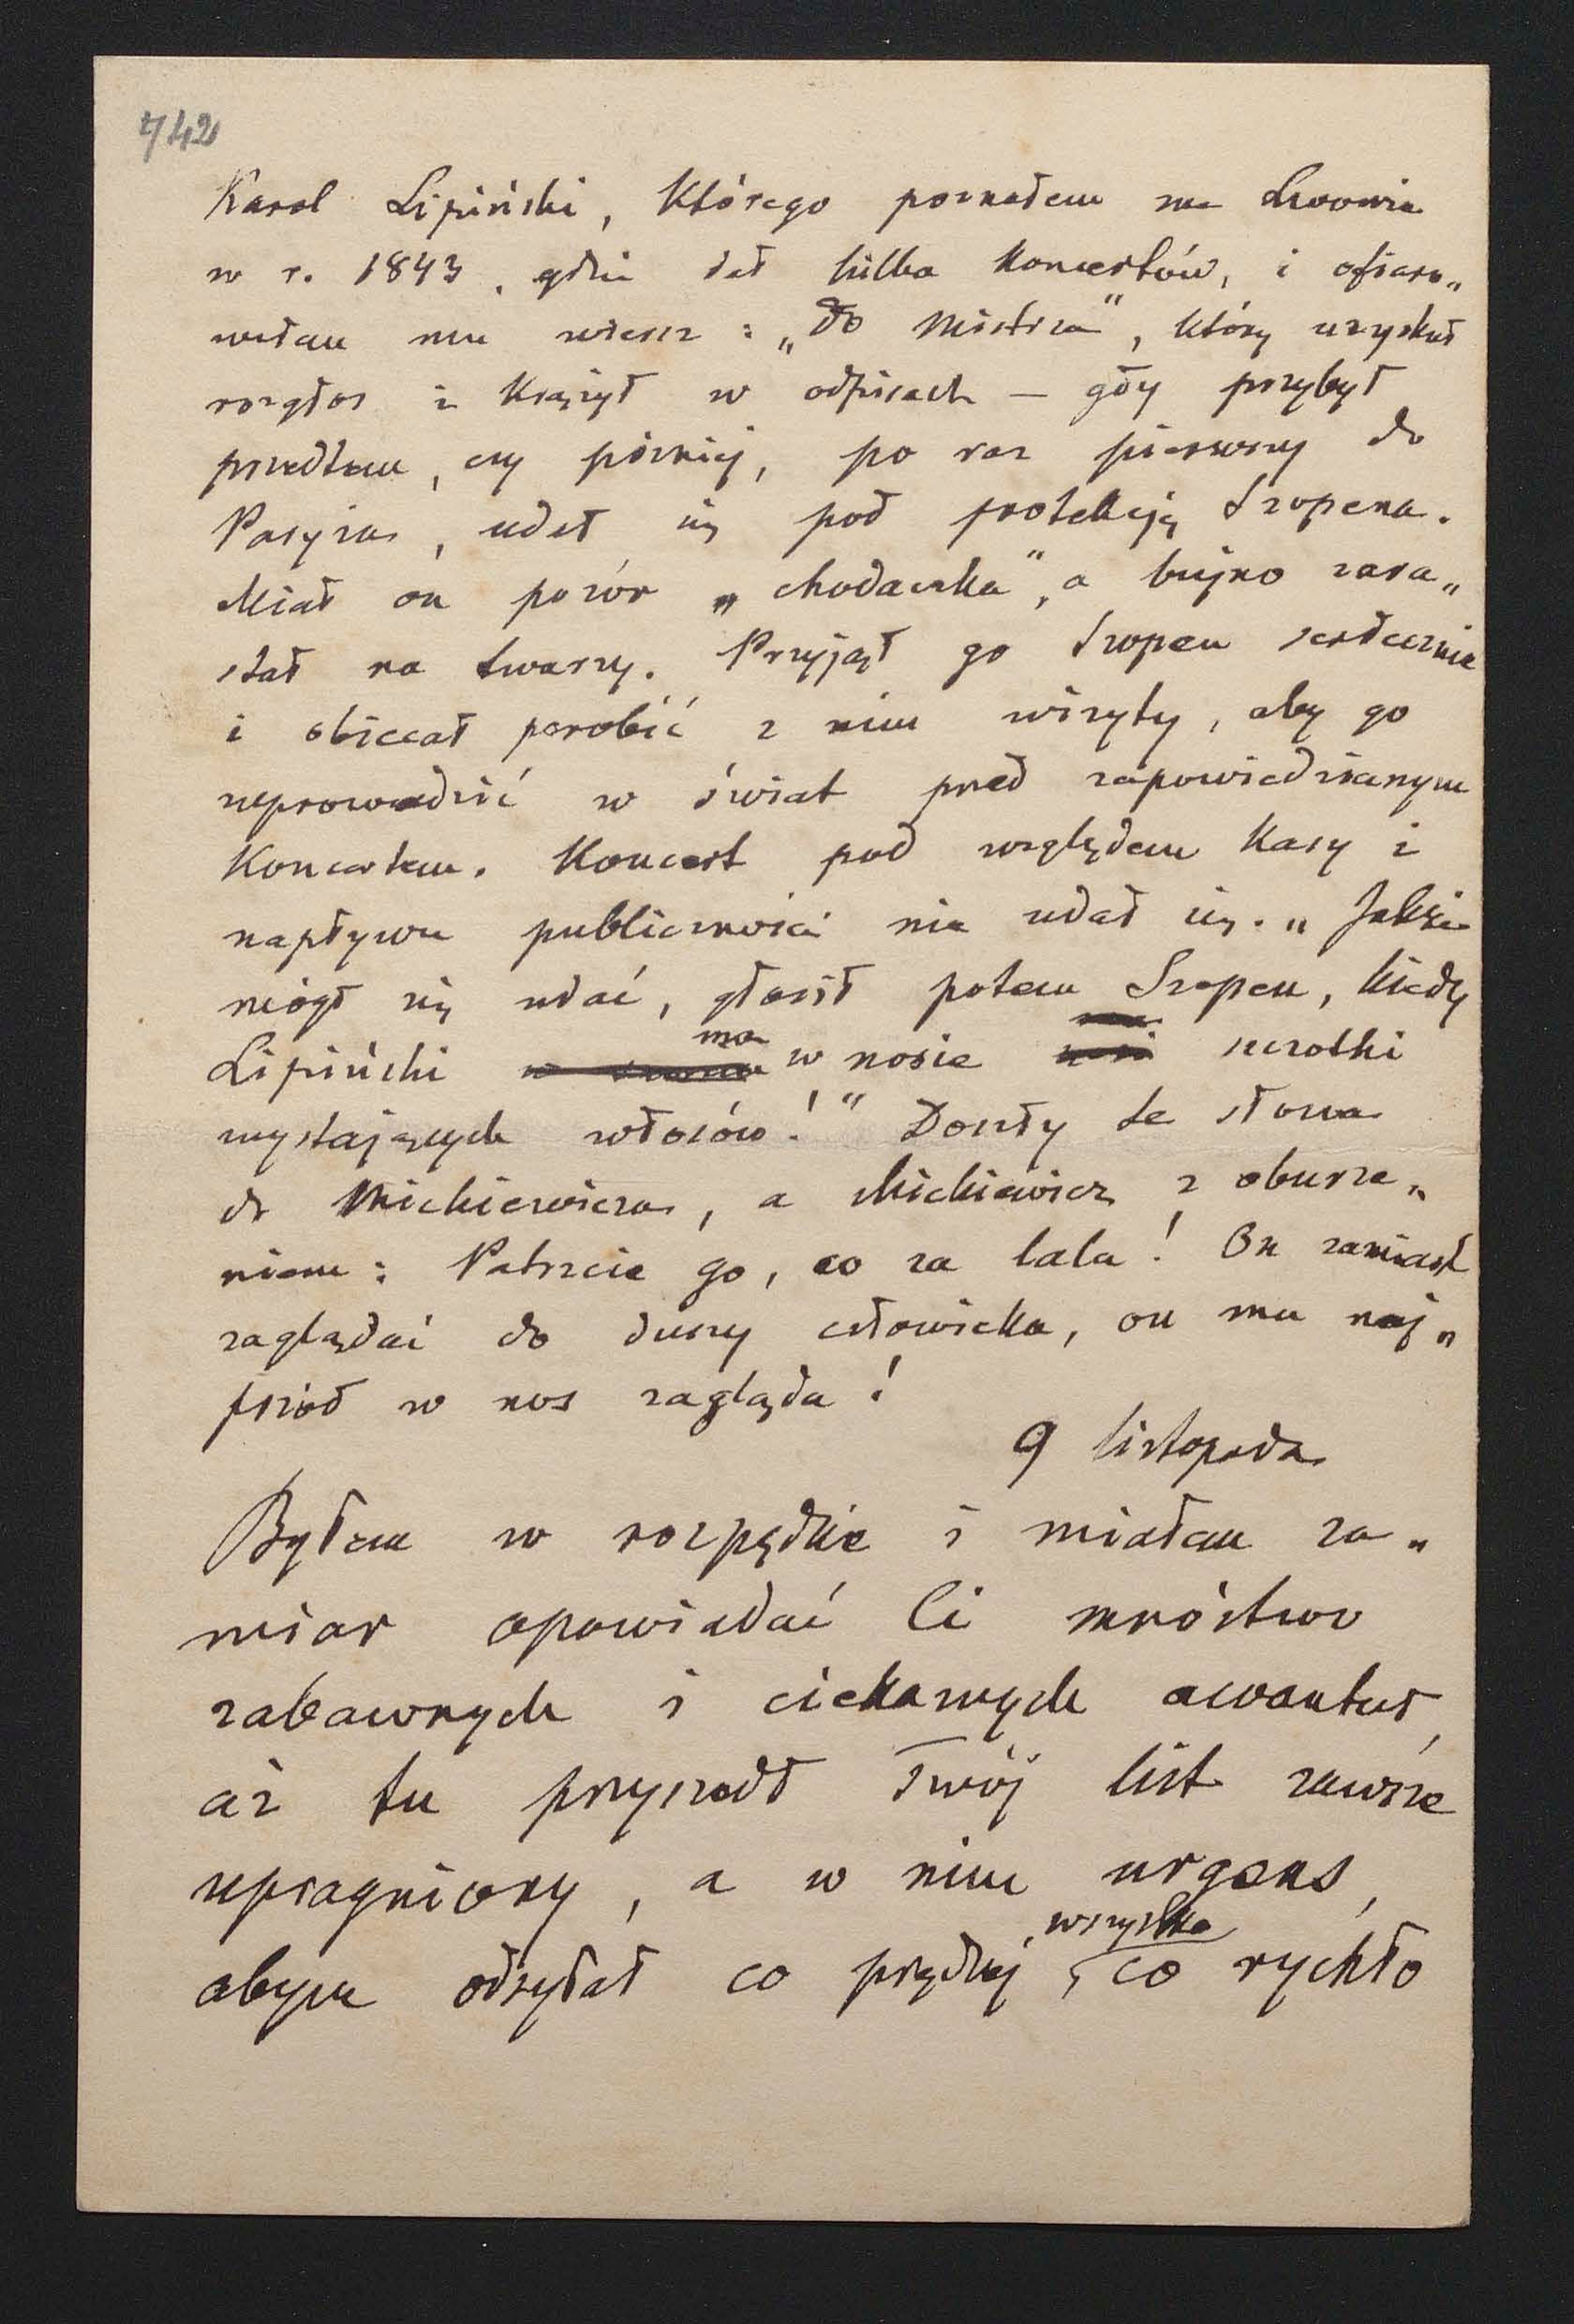 742
Karol Lipiński, którego poznałem we Lwowie
w r. 1843, gdzie dał kilka koncertów, i ofiaro„
wałem mu wiersz: „Do Mistrza", który uzyskał
rozgłos i krążył w odpisach — gdy przybył
przedtem, czy później, po raz pierwszy do
Paryża, udał się pod protekcją Szopena.
Miał on pozór „chodaczka", a bujno zara„
stał na twarzy. Przyjął go Szopen serdecznie
i obiecał porobić z nim wizyty, aby go
wprowadzić w świat przed zapowiedzianym
Koncertem. Koncert pod względem Kasy i
napływu publiczności nie udał się. „Jakże
mógł się udać, głosił potem Szopen, kiedy
Lipiński ma w nosie szczotki
wystających włosów!" Doszły te słowa
do Mickiewicza, a Mickiewicz z oburze„
niem: Patrzcie go, co za lala! On zamiast
zaglądać do duszy człowieka, on mu naj„
przód w nos zagląda!
9 listopada
Byłem w rozpędzie i miałem za„
miar opowiadać Ci mnóstwo
zabawnych i ciekawych awantur,
aż tu przyszedł Twój list zawsze
upragniony, a w nim urgens,
abym odsyłał co prędzej, wszystko co rychło